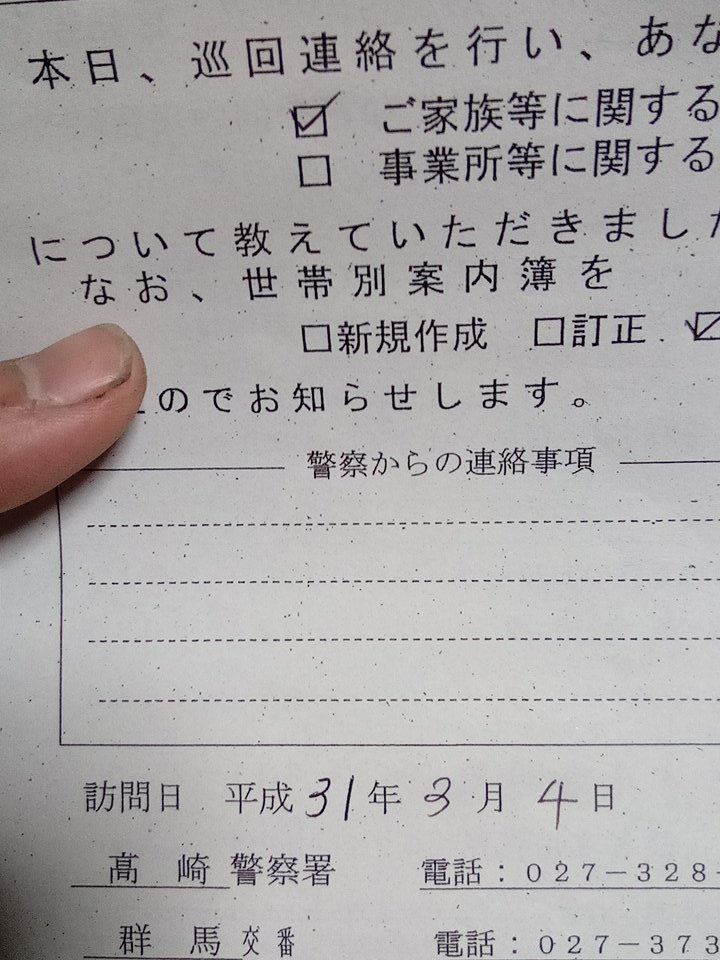 本日、巡回連絡を行い、あな
☑ ご家族等に関する
□ 事業所等に関する
について教えていただきました
なお、世帯別案内簿を
□新規作成 □訂正 ☑
のでお知らせします。
警察からの連絡事項
訪問日 平成31年3月4日
高崎警察署 電話:027-328-
群馬交番 電話:027-373